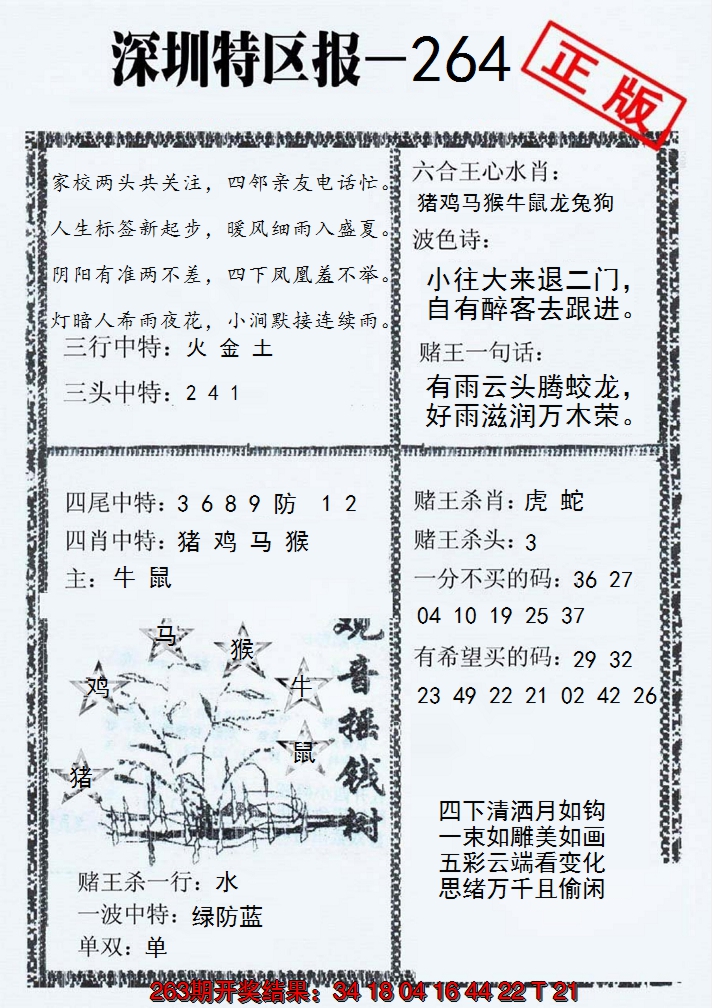 深圳特区报—264
正版
家校两头共关注，四邻亲友电话忙。
人生标签新起步，暖风细雨入盛夏。
阴阳有准两不差，四下凤凰羞不举。
灯暗人希雨夜花，小涧默接连续雨。
三行中特：火 金 土
三头中特：2 4 1
六合王心水肖：
猪鸡马猴牛鼠龙兔狗
波色诗：
小往大来退二门，
自有醉客去跟进。
赌王一句话：
有雨云头腾蛟龙，
好雨滋润万木荣。
四尾中特：3 6 8 9 防 1 2
四肖中特：猪 鸡 马 猴
主：牛 鼠
马
猴
鸡
牛
鼠
猪
观音摇钱树
赌王杀一行：水
一波中特：绿防蓝
单双：单
赌王杀肖：虎 蛇
赌王杀头：3
一分不买的码：36 27
04 10 19 25 37
有希望买的码：29 32
23 49 22 21 02 42 26
四下清洒月如钩
一束如雕美如画
五彩云端看变化
思绪万千且偷闲
263期开奖结果：34 18 04 16 44 22 T 21